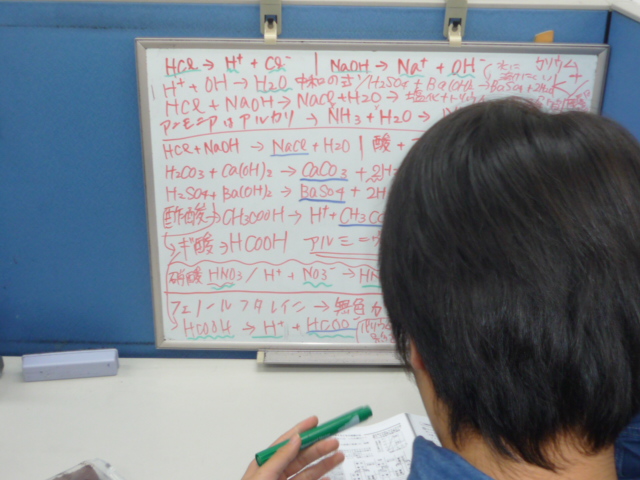 HCl → H⁺ + Cl⁻ | NaOH → Na⁺ + OH⁻
H⁺ + OH → H₂O 中和の式 / H₂SO₄ + Ba(OH)₂ → BaSO₄ + 2H₂O
HCl + NaOH → NaCl + H₂O → 塩化ナトリウム
アンモニアはアルカリ → NH₃ + H₂O →
HCl + NaOH → NaCl + H₂O | 酸 +
H₂CO₃ + Ca(OH)₂ → CaCO₃ + 2H
H₂SO₄ + Ba(OH)₂ → BaSO₄ + 2H
酢酸 → CH₃COOH → H⁺ + CH₃CO
→ ギ酸 → HCOOH アルミニ
硝酸 HNO₃ / H⁺ + NO₃⁻ → HN
フェノールフタレイン → 無色
HCOOH → H⁺ + HCOO⁻